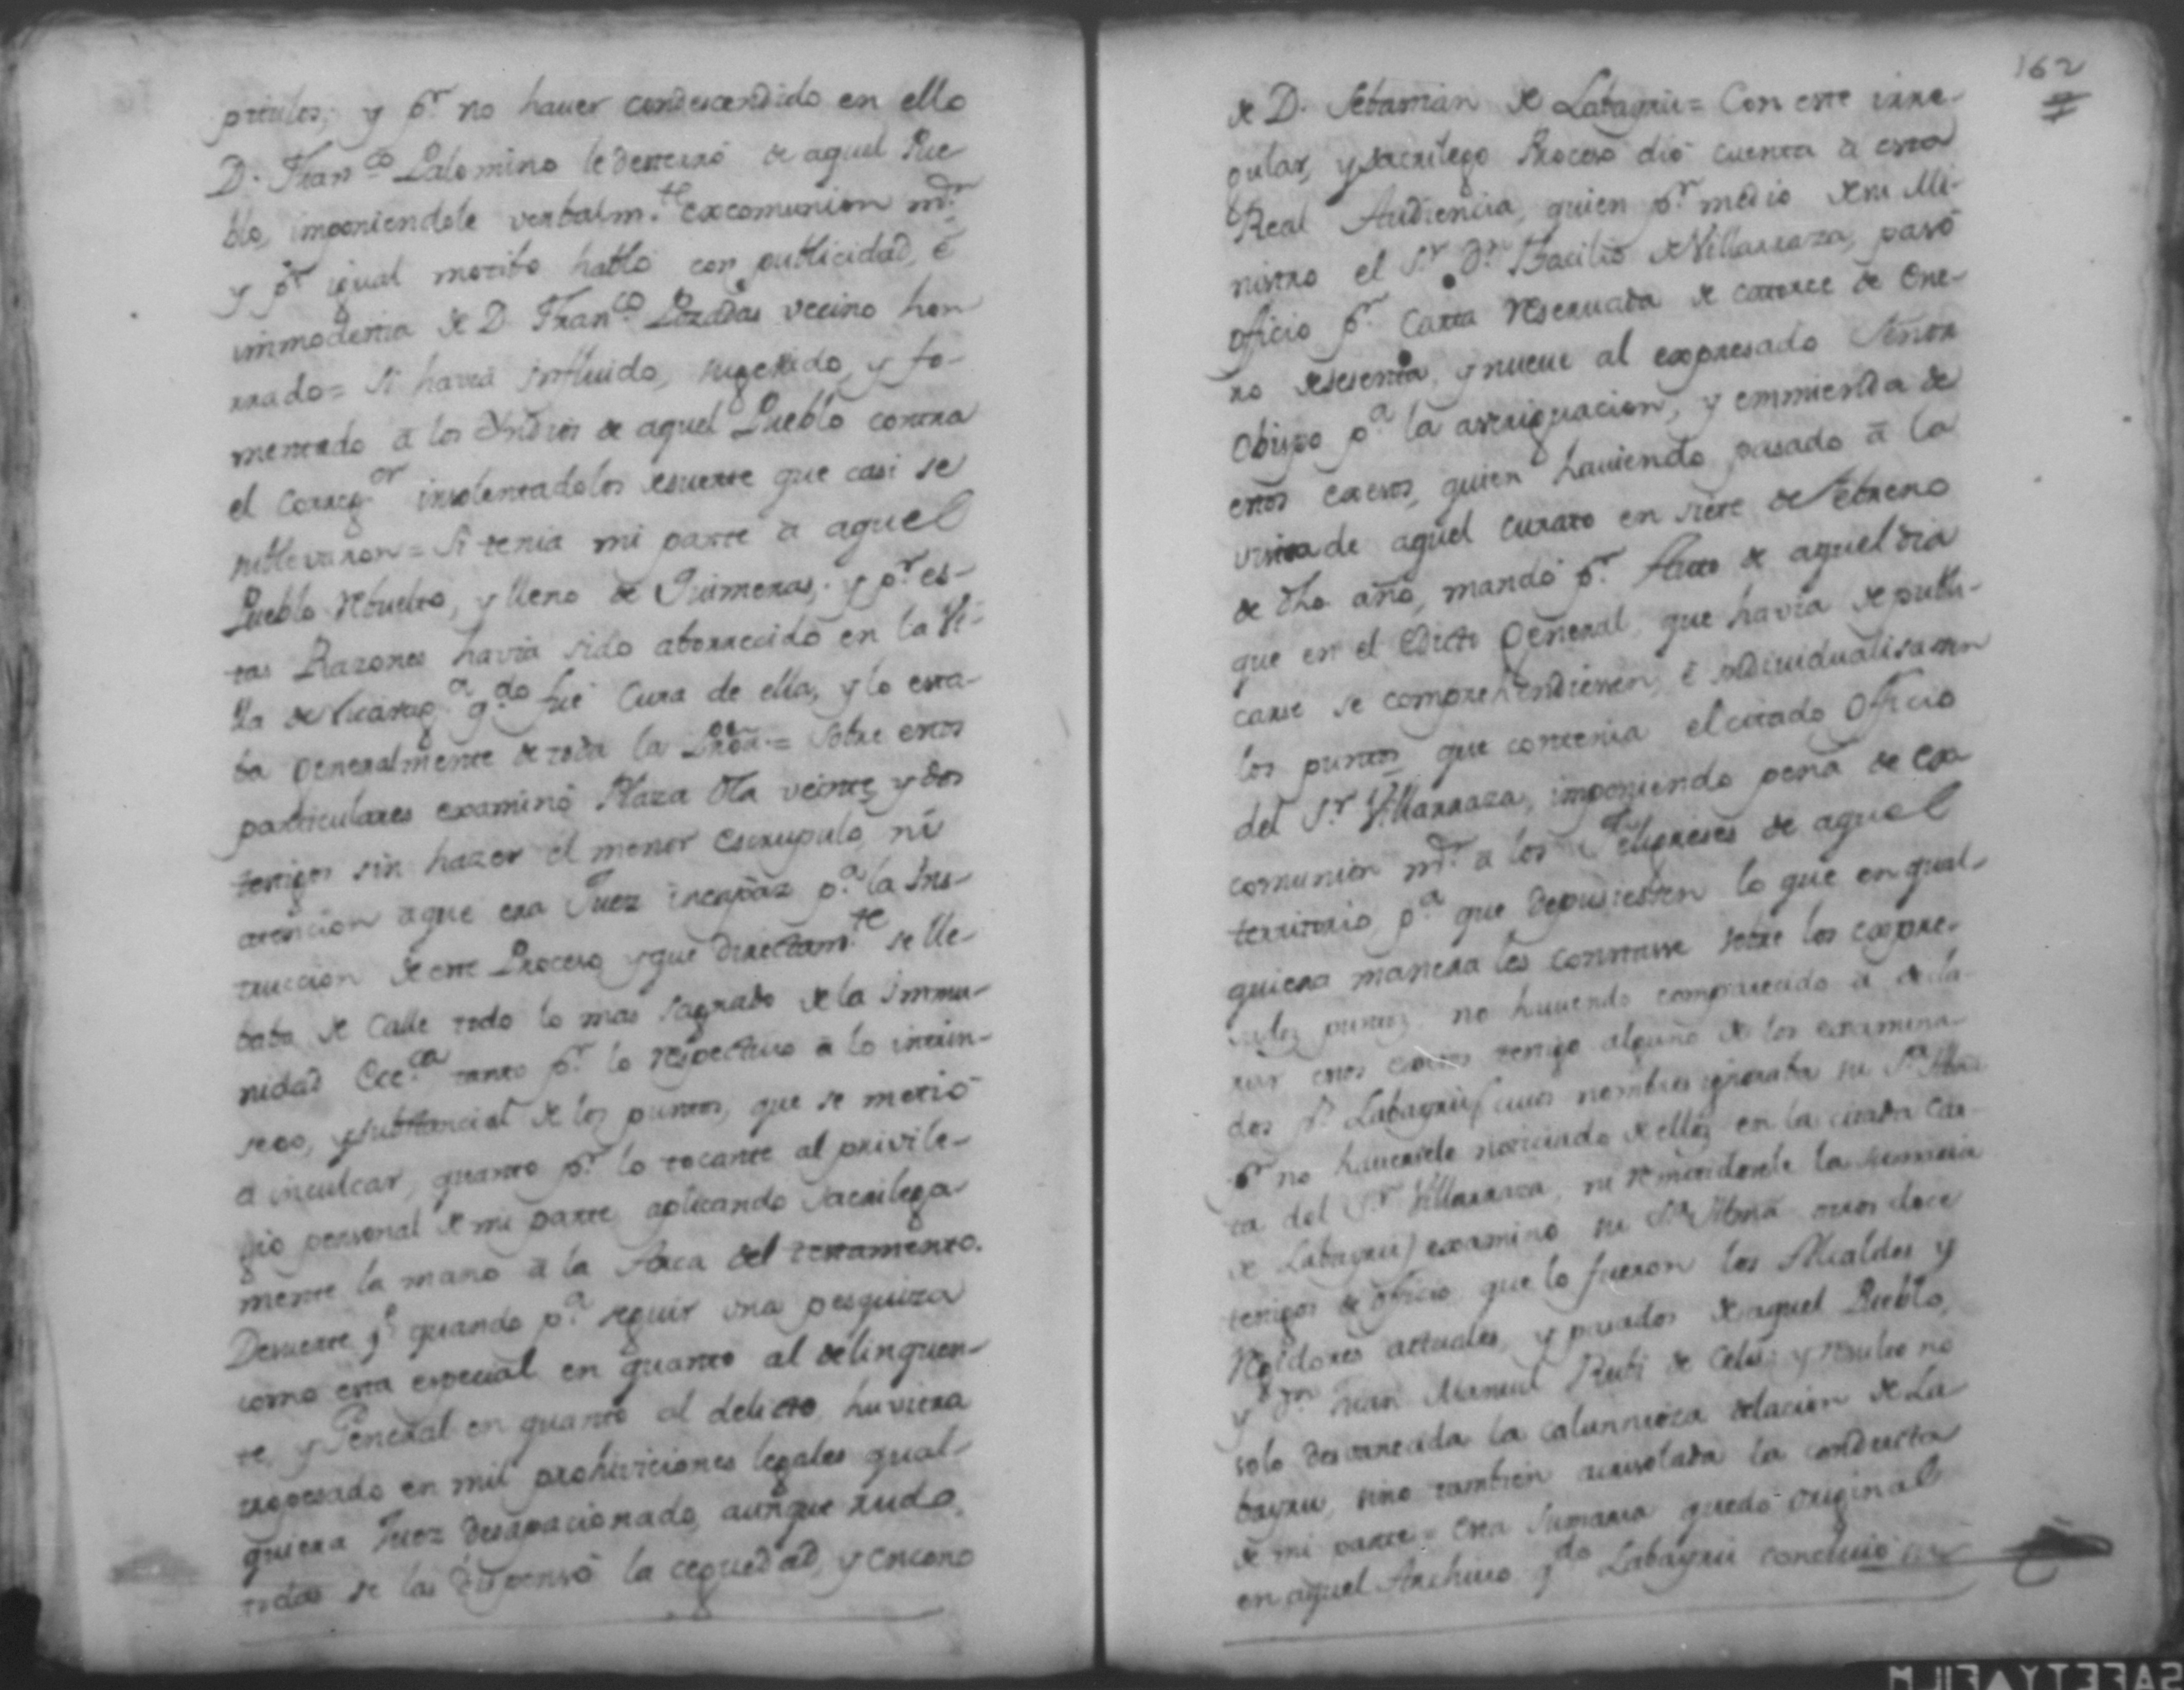 pitulos; y pr. no haver condescendido en ello
D. Franco. Palomino le desterró de aquel Pue
blo, imponiendole verbalmte. excomunion mr.
y pr. igual motibo habló con publicidad, é
immodestia de D. Franco. Lozadas vecino hon
rrado= Si havia influido, sugerido, y fo-
mentado á los Yndios de aquel Pueblo contra
el Corregor. insolentadolos desuerte que casi se
sublevaron= Si tenia mi parte á aquel
Pueblo rebuelto, y lleno de Quimeras; y pr. es-
tas Razones havia sido aborrecido en la Vi-
lla de qdo. fué Cura de ella, y lo esta-
ba generalmente de toda la Proa.= Sobre estos
particulares examinó Plaza dha veinte y dos
testigos sin hazer el menor escrupulo, ni
atencion aque era Juez incapaz pa. la Ins-
truccion de este Proceso, yque directamte. se lle-
baba de Calle todo lo mas sagrado de la Immu-
nidad Ecca. tanto pr. lo respectivo á lo intrin-
seco, ysubstancial de los puntos, que se metió
á inculcar, quanto pr. lo tocante al privile-
gio personal de mi parte aplicando sacrilega-
mente la mano á la Arca del testamento.
Desuerte qe. quando pa. seguir una pesquiza
como esta especial en quanto al delinquen-
te, y General en quanto al delicto, huviera
tropesado en mil prohiviciones legales qual-
quiera Juez desapacionado, aunque rudo,
todas se las dispensó la ceguedad, y encono
162
de D. Sebastian de Labayru= Con este irre-
gular, ysacrilego Proceso dió cuenta á esta
Real Audiencia, quien pr. medio desu Mi-
nistro el Sr. Dn. Bacilio de Villarraza, pasó
oficio pr. Carta reservada de catorce de Ene-
ro desesenta, ynueve al expresado Señor
Obispo pa. la averiguacion, y emmienda de
estos excesos, quien haviendo pasado á la
visita de aquel curato en siete de Febrero
de dho año, mandó pr. Auto de aquel dia
que en el Edicto General, que havia de publi-
carse se comprehendiesen, é individualisasen
los puntos que contenia el citado Oficio
del Sr. Villarraza, imponiendo pena de Ex
comunion mr. á los Feligreses de aquel
territorio, pa. que depusiessen lo que en qual-
quiera manera les constasse sobre los expre-
sados puntos, no haviendo comparecido á decla-
rar estos testigo alguno de los examina-
dos pr. Labayru (cuios nombres ignoraba su Sa. Illma.
pr. no haversele noticiado de ellos en la citada Car-
ta del Sr. Villarraza, ni remitidosele la sumaria
de Labayru) examinó su Sa. Illma. otros doce
testigos de oficio que lo fueron los Alcaldes y
Regidores actuales, y pasados de aquel Pueblo,
y Dn. Juan Manuel de Celis; y resultó no
solo desvanecida la calumnioza delacion de La-
bayru, sino tambien acrisolada la conducta
de mi parte= Esta Sumaria quedó original
en aquel Archivo qdo. Labayru concluió